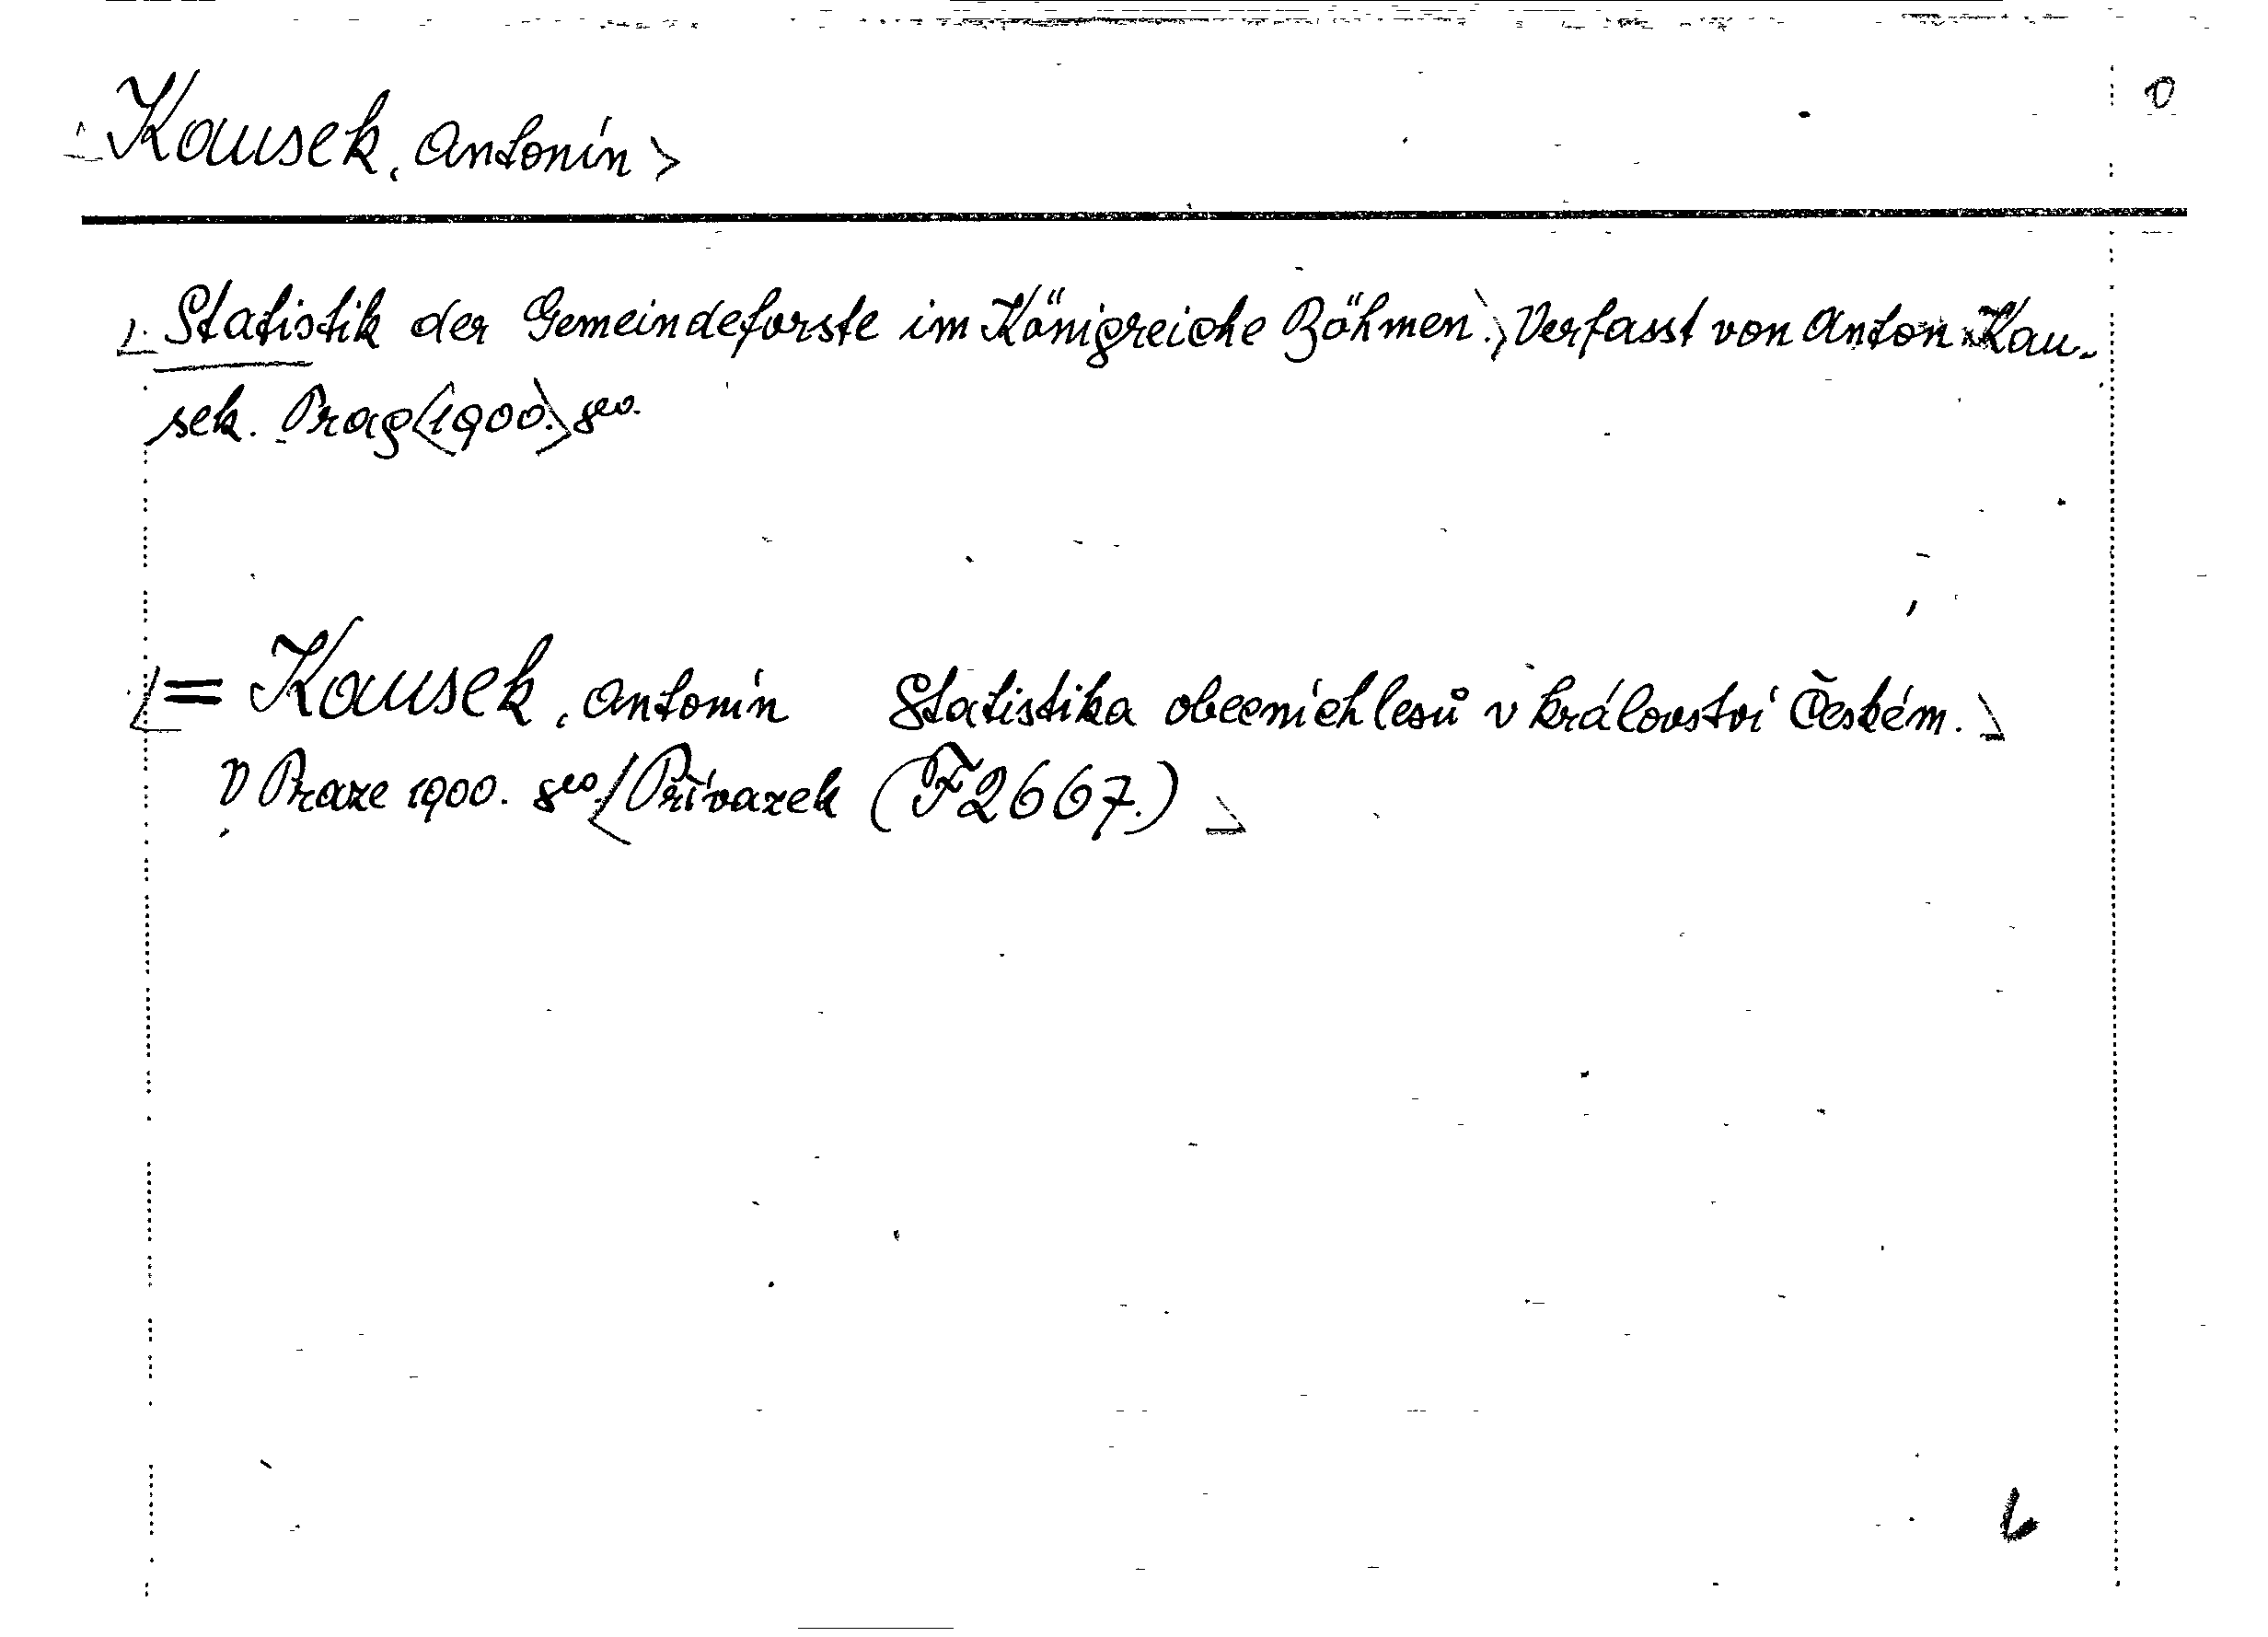 <Kausek, Antonín>
<Statistik der Gemeindeforste im Königreiche Böhmen.> Verfasst von Anton Kau-
sek. Prag <1900.> 8vo.
<= Kausek, Antonín Statistika obecních lesů v království Českém.>
V Praze 1900. 8vo. <Přívazek (F2667.)>